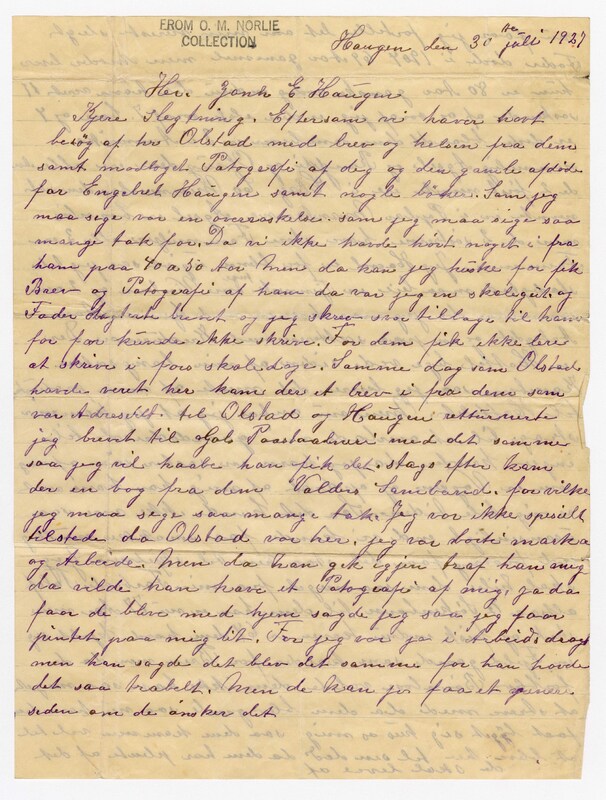 FROM O. M. NORLIE
COLLECTION
Haugen den 30te juli 1927
Hr. E Haugen
Kjere slegtning. Eftersom vi haver havt
besøg af hr Olstad med brev og helsen fra dem
samt modtoget Patografi af deg og den gamle afdøde
far Engebret Haugen samt nogle bøker. Som jeg
maa sege var en overaskelse. som jeg maa sige saa
mange tak for. Da vi ikke havde hørt noget i fra
ham paa 40 a 50 aar Men da kan jeg huske for fik
Brev og Patografi af ham da var jeg en skolegut og
Fader brevet og jeg skrev svar tillage til ham
for far kunde ikke skrive. For dem fik ikke lere
at skrive i fars skoledage. Samme dag som Olstad
havde veret her kam der et brev i fra dem som
var Adresert til Olstad og Haugen retturnerte
jeg brevet til Gol med det samme
saa jeg vil haabe han fik det. stags efter kam
der en bog fra dem Valdris Samband. for vilke
jeg maa sege saa mange tak. Jeg var ikke spesielt
tilstede da Olstad var her. jeg var borte i marka
og Arbeide. Men da han gik igjen traf han mig
da vilde han have et Patografi af mig, ja da
faar de blive med hjem sagde jeg saa jeg faar
pintet paa mig lit. For jeg var ja i Arbeidsdragt
men han sagde det blev det samme for han havde
det saa trabelt. Men de kan jo faa et
seden om de ønsker det